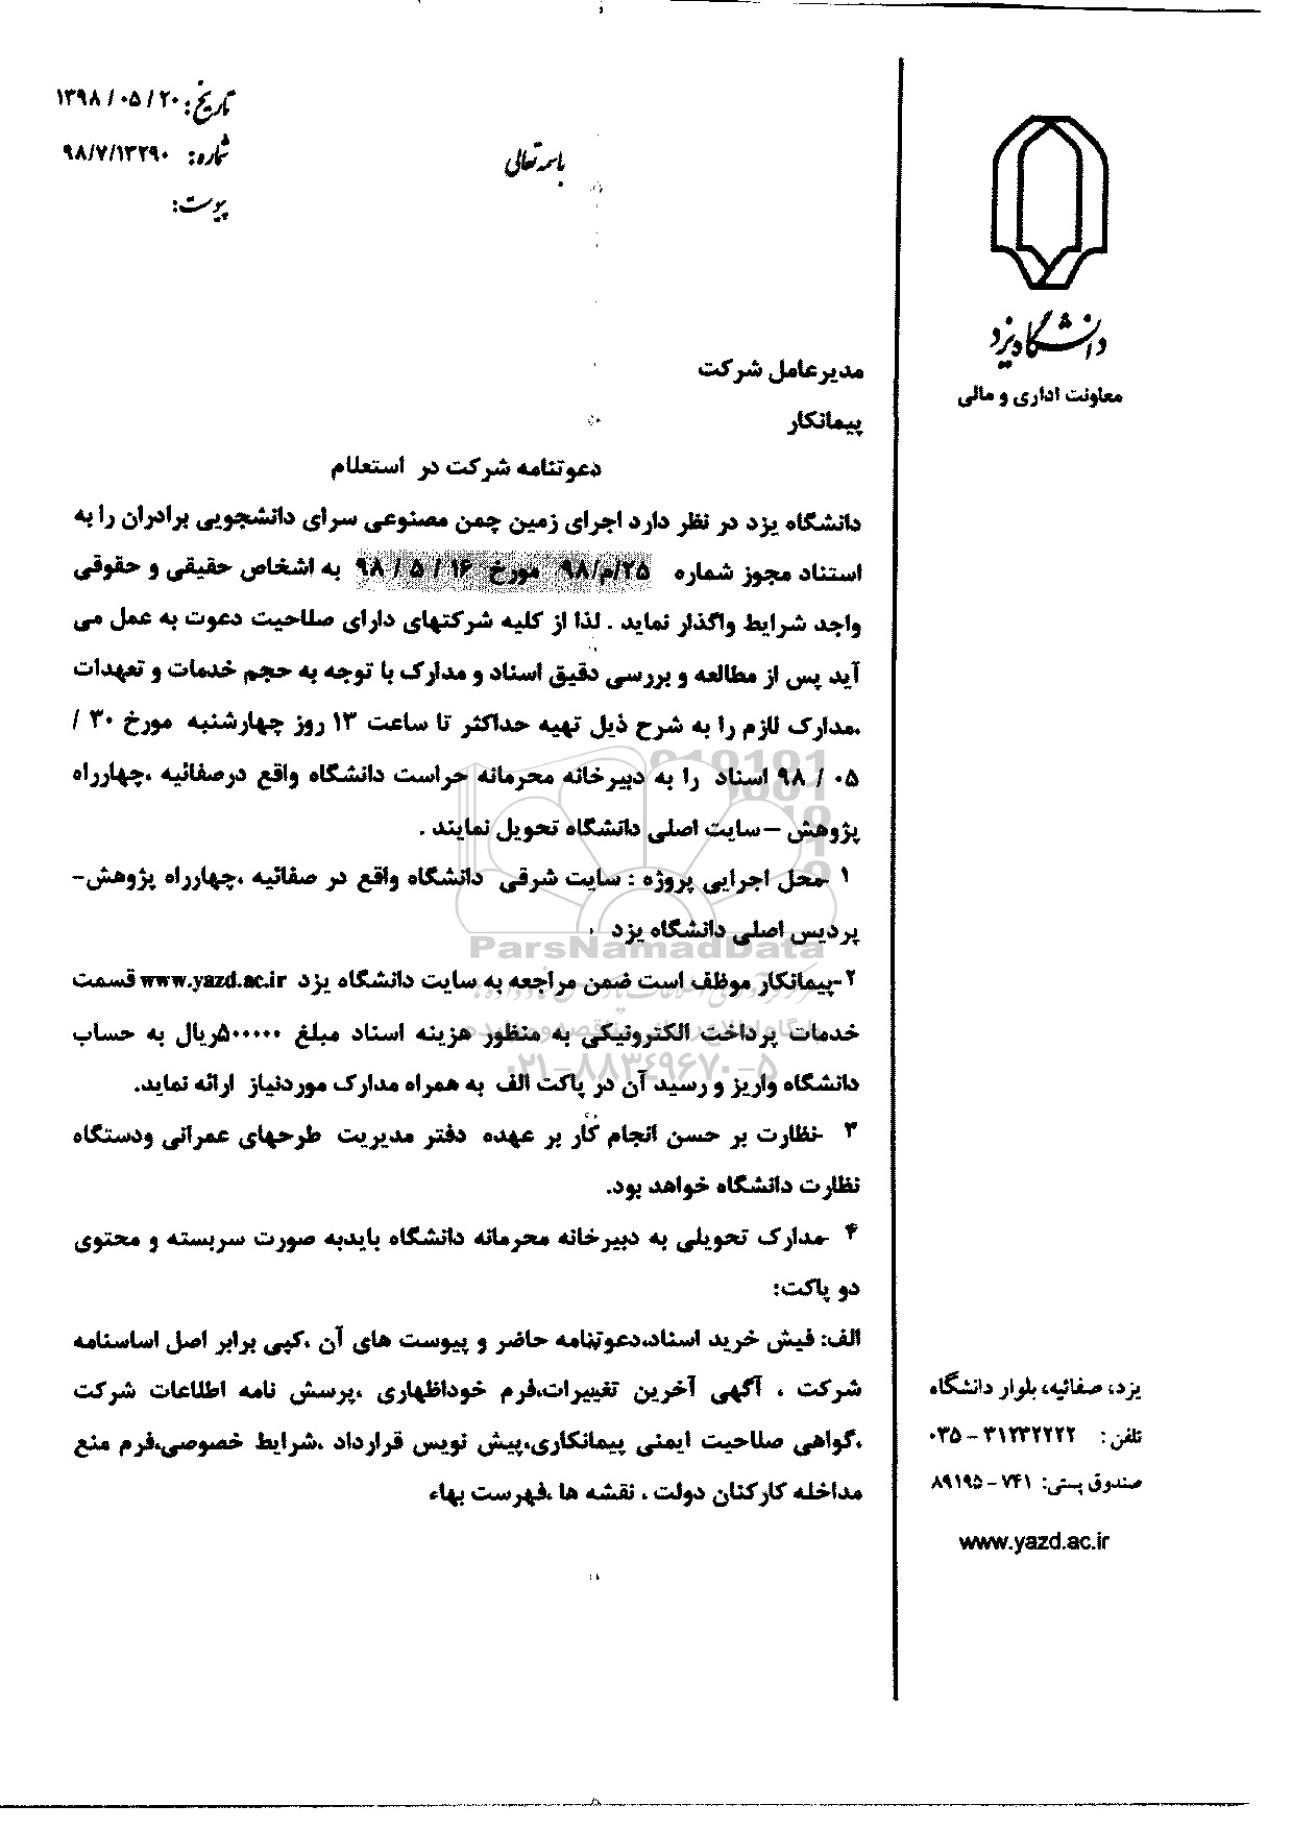 تاریخ: ۲۰ / ۰۵ / ۱۳۹۸
شماره: ۹۸/۷/۱۳۲۹۰
پیوست:
باسمه تعالی
دانشگاه یزد
معاونت اداری و مالی
مدیرعامل شرکت
پیمانکار
دعوتنامه شرکت در استعلام
دانشگاه یزد در نظر دارد اجرای زمین چمن مصنوعی سرای دانشجویی برادران را به
استناد مجوز شماره ۲۵/م/۹۸ مورخ ۱۶ / ۵ / ۹۸ به اشخاص حقیقی و حقوقی
واجد شرایط واگذار نماید . لذا از کلیه شرکتهای دارای صلاحیت دعوت به عمل می
آید پس از مطالعه و بررسی دقیق اسناد و مدارک با توجه به حجم خدمات و تعهدات
،مدارک لازم را به شرح ذیل تهیه حداکثر تا ساعت ۱۳ روز چهارشنبه مورخ ۳۰ /
۰۵ / ۹۸ اسناد را به دبیرخانه محرمانه حراست دانشگاه واقع درصفائیه ،چهارراه
پژوهش – سایت اصلی دانشگاه تحویل نمایند .
۱ -محل اجرایی پروژه : سایت شرقی دانشگاه واقع در صفائیه ،چهارراه پژوهش-
پردیس اصلی دانشگاه یزد .
۲-پیمانکار موظف است ضمن مراجعه به سایت دانشگاه یزد www.yazd.ac.ir قسمت
خدمات پرداخت الکترونیکی به منظور هزینه اسناد مبلغ ۵۰۰۰۰۰ریال به حساب
دانشگاه واریز و رسید آن در پاکت الف به همراه مدارک موردنیاز ارائه نماید.
۳ -نظارت بر حسن انجام کار بر عهده دفتر مدیریت طرحهای عمرانی ودستگاه
نظارت دانشگاه خواهد بود.
۴ -مدارک تحویلی به دبیرخانه محرمانه دانشگاه بایدبه صورت سربسته و محتوی
دو پاکت:
الف: فیش خرید اسناد،دعوتنامه حاضر و پیوست های آن ،کپی برابر اصل اساسنامه
شرکت ، آگهی آخرین تغییرات،فرم خوداظهاری ،پرسش نامه اطلاعات شرکت
،گواهی صلاحیت ایمنی پیمانکاری،پیش نویس قرارداد ،شرایط خصوصی،فرم منع
مداخله کارکنان دولت ، نقشه ها ،فهرست بهاء
یزد، صفائیه، بلوار دانشگاه
تلفن : ۳۱۲۳۲۲۲۲ – ۰۳۵
صندوق پستی: ۷۴۱ – ۸۹۱۹۵
www.yazd.ac.ir
ParsNamadData
۰۲۱–۸۸۳۴۹۶۷۰–۵